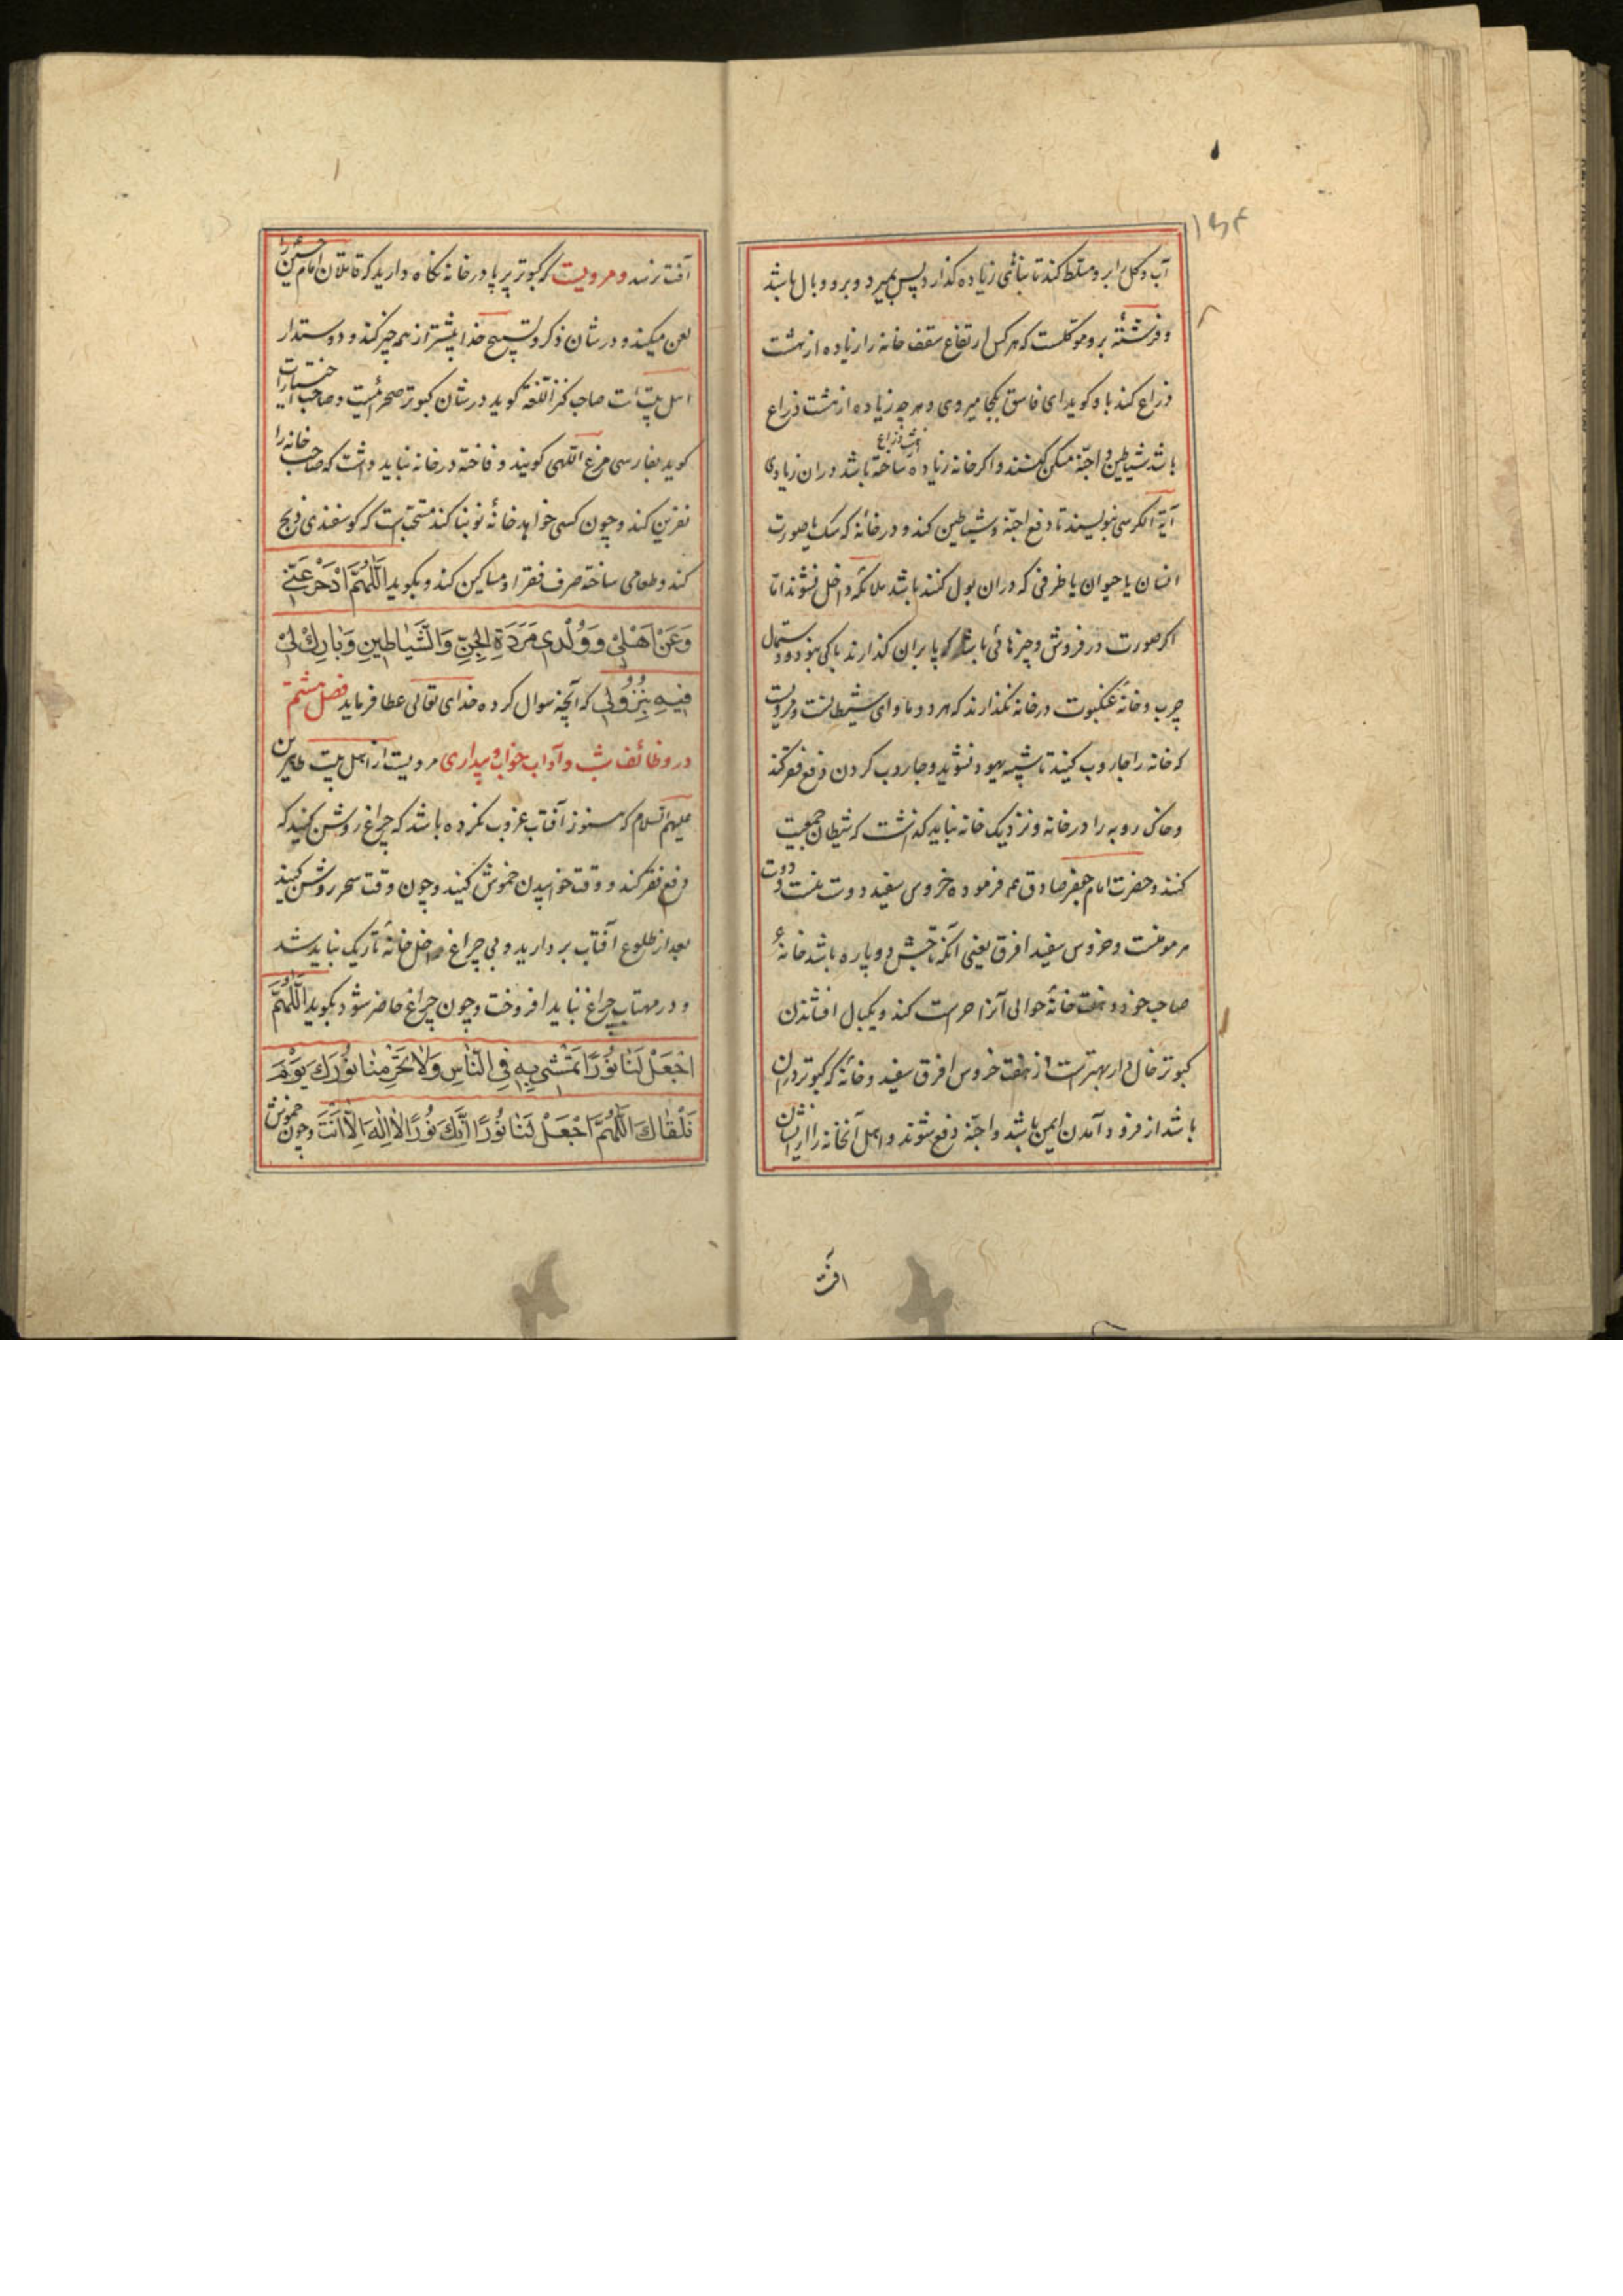 ۱۵۴
آب و گل را برو مسلط کند تا بنائی زیاده گذارد پس بمیرد و برو وبال باشد
و فرشتهٔ برو موکلست که هر کس ارتفاع سقف خانه را زیاده از هشت
ذراع کند باو گوید ای فاسق بکجا میروی و هر چه زیاده از هشت ذراع
باشد شیاطین و اجنّه مسکن کنند و اگر خانه زیاده از هشت ذراع ساخته باشد دران زیادی
آیة الکرسی بنویسند تا دفع اجنّه و شیاطین کند و در خانهٔ که سک یا صورت
انسان یا حیوان یا ظرفی که دران بول کنند باشد ملائکه داخل نشوند امّا
اگر صورت در فروش و چیزهائی باشد که پا بران گذارند باکی نبود و دستمال
چرب و خانهٔ عنکبوت در خانه نگذارند که هر دو ماوای شیطانست و مرویست
که خانه را جاروب کنید تا شبیه یهود نشوید و جاروب کردن دفع فقر کند
و خاک روبه را در خانه و نزدیک خانه نباید گذاشت که شیطان جمعیت
کنند و حضرت امام جعفر صادق عم فرموده خروس سفید دوست منست و دوست
هر مومنست و خروس سفید افرق یعنی آنکه تاجش دو پاره باشد خانهٔ
صاحب خود و هفت خانهٔ حوالی آنرا حراست کند و یکبال افشاندن
کبوتر خال دار بهتر است از هفت خروس افرق سفید و خانهٔ که کبوتر دران
باشد از فرود آمدن ایمن باشد و اجنّه دفع شوند و اهل آنخانه را از ایشان
آفت
آفت نرسد و مرویست که کبوتر پرپا در خانه نگاه دارید که قاتلان امام حسین را
لعن میکند و در شان ذکر و تسبیح خدا بیشتر از همه چیز کند و دوستدار
اهل بیت است صاحب کنز اللغه گوید در شان کبوتر صحرائیست و صاحب اختیارات
گوید بفارسی مرغ اللهی گویند و فاخته در خانه نباید داشت که صاحب خانه را
نفرین کند و چون کسی خواهد خانهٔ نو بنا کند مستحب است که گوسفندی ذبح
کند و طعامی ساخته صرف فقرا و مساکین کند و بگوید اَللّٰهُمَّ ادْحَرْ عَنّی
وَعَنْ اَهْلی وَوُلْدی مَرَدَةِ الجِنِّ وَالشَّیاطینِ وَبارِكْ لی
فیهِ بِنُزُولی که آنچه سوال کرده خدای تعالی عطا فرماید فصل هشتم
در وظائف شب و آداب خواب و بیداری مرویست از اهل بیت طاهرین
علیهم السلام که هنوز آفتاب غروب نکرده باشد که چراغ روشن کنید که
دفع فقر کند و وقت خوابیدن خموش کنید و چون وقت سحر روشن کنید
بعد از طلوع آفتاب بردارید و بی چراغ داخل خانهٔ تاریک نباید شد
و در مهتاب چراغ نباید افروخت و چون چراغ حاضر شود بگوید اَللّٰهُمَّ
اجْعَلْ لَنا نُورًا نَمْشی بِهِ فِی النّاسِ وَلا تَحْرِمْنا نُورَكَ یَوْمَ
نَلْقاكَ اَللّٰهُمَّ اجْعَلْ لَنا نُورًا اِنَّكَ نُورٌ لا اِلٰهَ اِلّا اَنْتَ و چون خموش